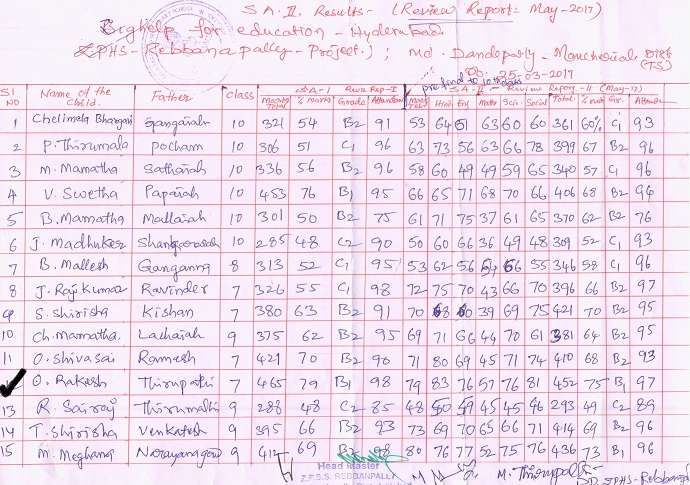 S A. II. Results - (Review Report: May-2017)
Bighelp for education - Hyderabad
ZPHS-Rebbanapally-Project.); Md. Dandepally-Mancherial Dist (TS)
25-03-2017
Sl NO Name of the Child. Father Class SA-I Rev.Rep-I SA-II - Review Report-II (May-17)
Marks Total % Marks Grade Attendance Telu Hind Eng Maths Scie. Social Total % Mark Gr. Attend
1 Chelimela Bhargavi Gangaiah 10 321 54 B2 91 53 64 51 63 60 60 361 60% C1 93
2 P. Thirumala Pocham 10 306 51 C1 96 63 73 56 63 66 78 399 67 B2 96
3 M. Mamatha Sathaiah 10 336 56 B2 96 58 60 49 49 59 65 340 57 C1 96
4 V. Swetha Papaiah 10 453 76 B1 95 66 65 71 68 70 66 406 68 B2 94
5 B. Mamatha Mallaiah 10 301 50 B2 75 61 71 75 37 61 65 370 62 B2 76
6 J. Madhuker 10 285 48 C2 90 50 60 66 36 49 48 309 52 C1 93
7 B. Mallesh Ganganna 8 313 52 C1 95 53 62 56 54 66 55 346 58 C1 96
8 J. Raj Kumar Ravinder 7 326 55 C1 98 72 75 70 43 66 70 396 66 B2 97
9 S. Shirisha Kishan 7 380 63 B2 91 70 68 60 39 69 75 421 70 B2 95
10 Ch. Mamatha. Lachaiah 9 375 62 B2 95 69 71 66 44 70 61 381 64 B2 95
11 O. Shivasai Ramesh 7 421 70 B2 90 71 80 69 45 71 74 410 68 B2 93
O. Rakesh Thirupathi 7 465 79 B1 98 79 83 76 57 76 81 452 75 B1 97
13 R. Sairaj Thirumathi 9 288 48 C2 85 48 60 49 45 45 46 293 49 C2 89
14 T. Shirisha Venkatesh 9 395 66 B2 93 73 69 70 65 66 71 414 69 B2 96
15 M. Meghana Narayanagow 9 412 69 B2 98 80 76 77 52 75 76 436 73 B1 96
Head Master
Z.P.S.S. REBBANPALLI
M. Thirupathi
ZPHS-Rebbanapally